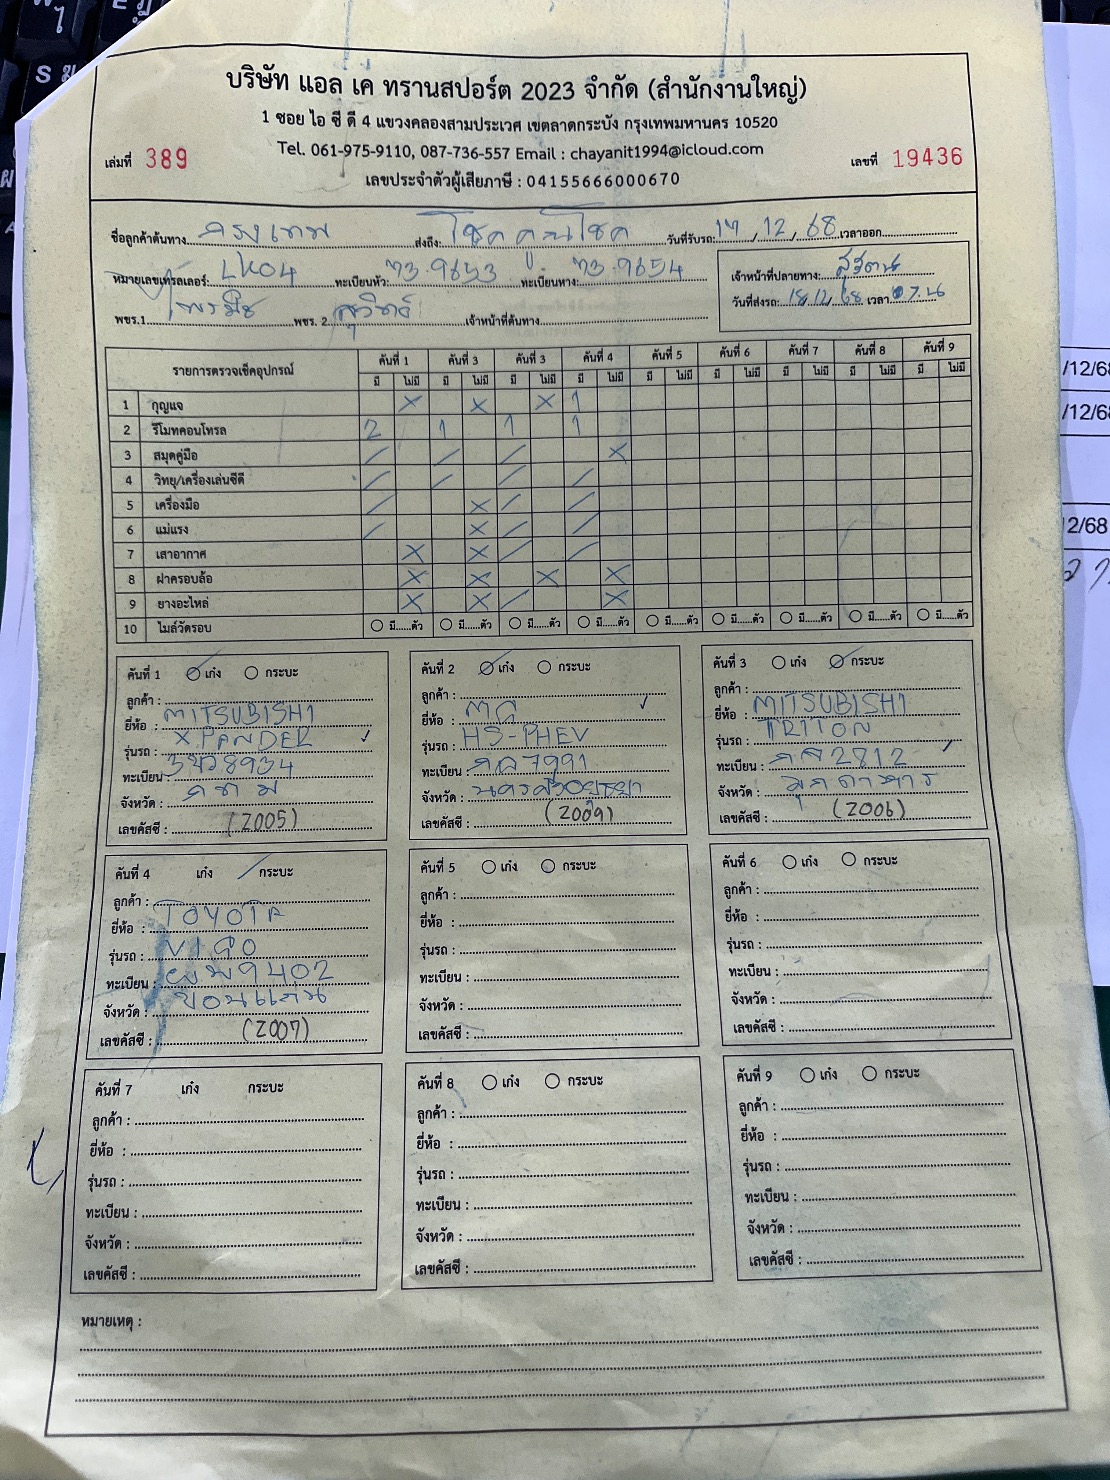 บริษัท แอล เค ทรานสปอร์ต 2023 จำกัด (สำนักงานใหญ่)
1 ซอย ไอ ซี ดี 4 แขวงคลองสามประเวศ เขตลาดกระบัง กรุงเทพมหานคร 10520
Tel. 061-975-9110, 087-736-557 Email : chayanit1994@icloud.com
เล่มที่ 389 เลขที่ 19436
เลขประจำตัวผู้เสียภาษี : 04155666000670
ชื่อลูกค้าต้นทาง กรุงเทพ ส่งถึง: โชคคูณโชค วันที่รับรถ: 17/12/68 เวลาออก
หมายเลขเทรลเลอร์: LK04 ทะเบียนหัว: 73-9653 ทะเบียนหาง: 73-9654
เจ้าหน้าที่ปลายทาง:
พขร.1 พขร. 2 เจ้าหน้าที่ต้นทาง
วันที่ส่งรถ: 18/12/68 เวลา 07.น
รายการตรวจเช็คอุปกรณ์ คันที่ 1 คันที่ 3 คันที่ 3 คันที่ 4 คันที่ 5 คันที่ 6 คันที่ 7 คันที่ 8 คันที่ 9
มี ไม่มี มี ไม่มี มี ไม่มี มี ไม่มี มี ไม่มี มี ไม่มี มี ไม่มี มี ไม่มี มี ไม่มี
1 กุญแจ × × × 1
2 รีโมทคอนโทรล 2 1 1 1
3 สมุดคู่มือ / / / ×
4 วิทยุ/เครื่องเล่นซีดี / / / /
5 เครื่องมือ / × / /
6 แม่แรง / × / /
7 เสาอากาศ × × / /
8 ฝาครอบล้อ × × × ×
9 ยางอะไหล่ × × / ×
10 ไมล์วัดรอบ มี.....ตัว มี.....ตัว มี.....ตัว มี.....ตัว มี.....ตัว มี.....ตัว มี.....ตัว มี.....ตัว มี.....ตัว
คันที่ 1 เก๋ง กระบะ
ลูกค้า :
ยี่ห้อ : MITSUBISHI
รุ่นรถ : XPANDER
ทะเบียน: 8934
จังหวัด : กทม
เลขคัสซี : (2005)
คันที่ 2 เก๋ง กระบะ
ลูกค้า :
ยี่ห้อ : MG
รุ่นรถ : HS-PHEV
ทะเบียน : 7991
จังหวัด :
เลขคัสซี : (2009)
คันที่ 3 เก๋ง กระบะ
ลูกค้า :
ยี่ห้อ : MITSUBISHI
รุ่นรถ : TRITON
ทะเบียน : 2812
จังหวัด : มุกดาหาร
เลขคัสซี : (2006)
คันที่ 4 เก๋ง กระบะ
ลูกค้า :
ยี่ห้อ : TOYOTA
รุ่นรถ : VIGO
ทะเบียน : 9402
จังหวัด : ขอนแก่น
เลขคัสซี : (2007)
คันที่ 5 เก๋ง กระบะ
ลูกค้า :
ยี่ห้อ :
รุ่นรถ :
ทะเบียน :
จังหวัด :
เลขคัสซี :
คันที่ 6 เก๋ง กระบะ
ลูกค้า :
ยี่ห้อ :
รุ่นรถ :
ทะเบียน :
จังหวัด :
เลขคัสซี :
คันที่ 7 เก๋ง กระบะ
ลูกค้า :
ยี่ห้อ :
รุ่นรถ :
ทะเบียน :
จังหวัด :
เลขคัสซี :
คันที่ 8 เก๋ง กระบะ
ลูกค้า :
ยี่ห้อ :
รุ่นรถ :
ทะเบียน :
จังหวัด :
เลขคัสซี :
คันที่ 9 เก๋ง กระบะ
ลูกค้า :
ยี่ห้อ :
รุ่นรถ :
ทะเบียน :
จังหวัด :
เลขคัสซี :
หมายเหตุ :
/12/68
/12/68
12/68